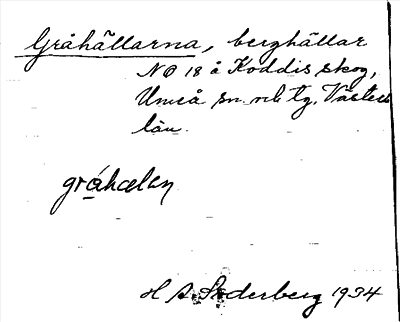 Gråhällarna, berghällar
NO 18 å Koddis skog,
Umeå sn och tg. Västerb
län.
gråhælan
H S. Söderberg 1934